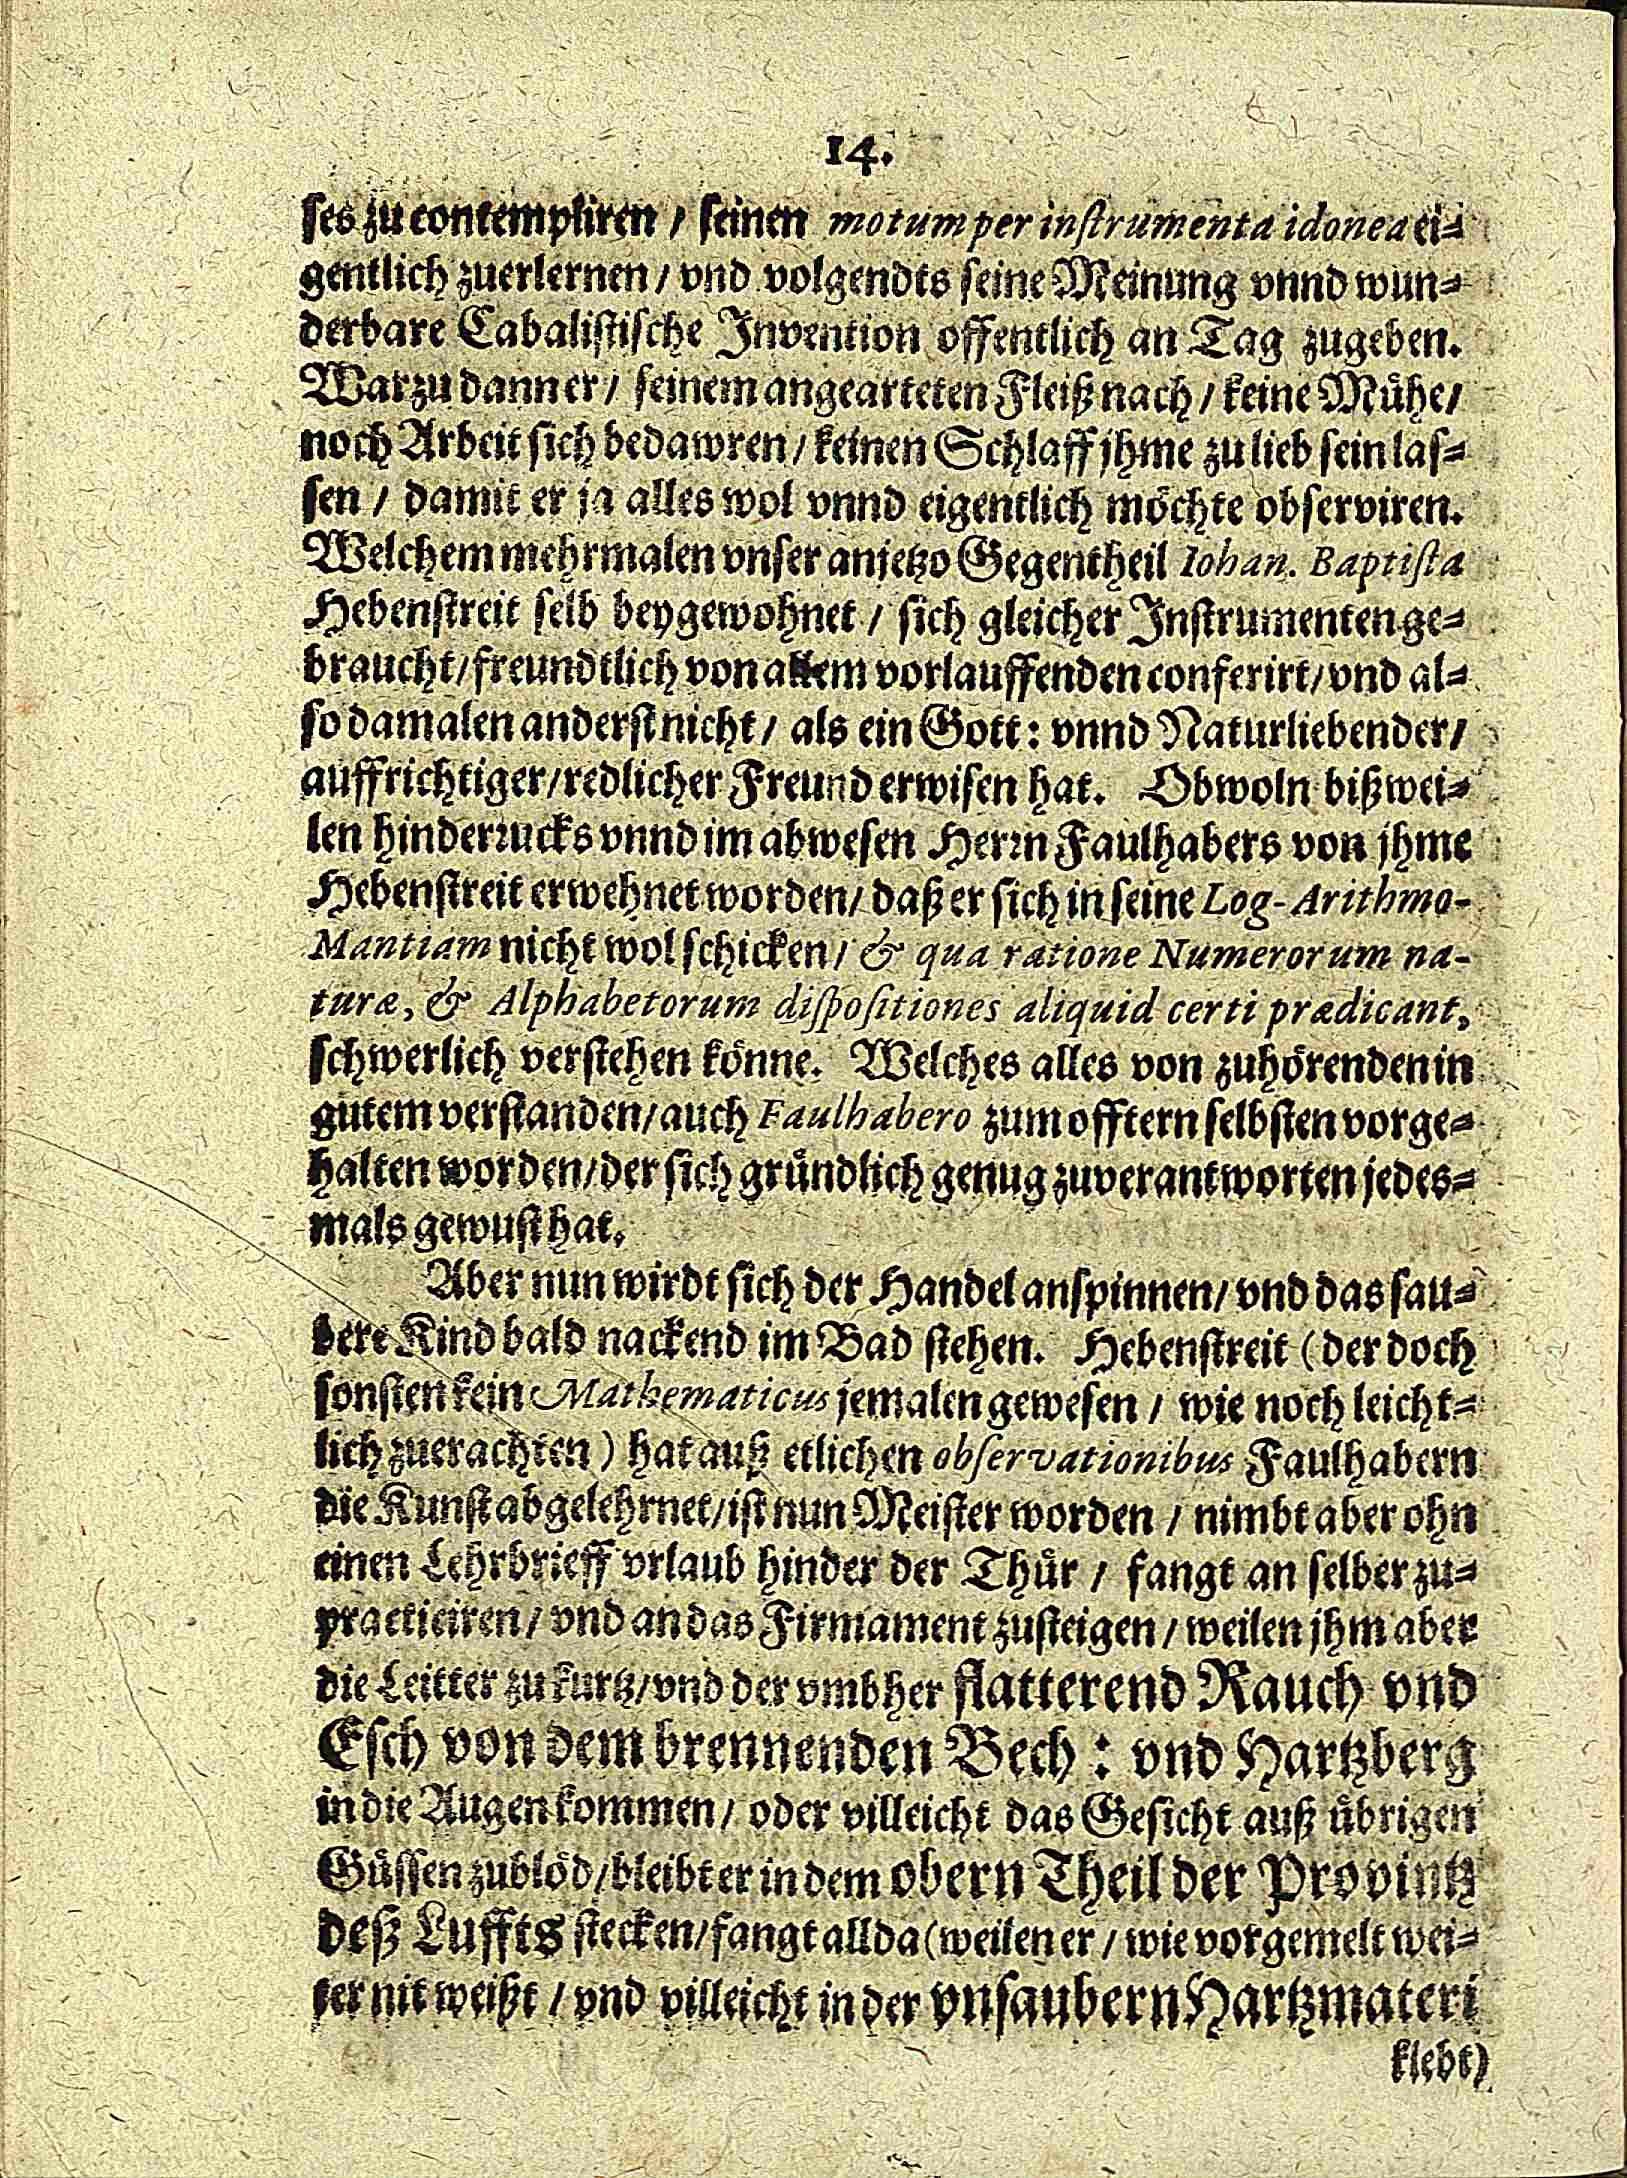 14.
ses zu contempliren / seinen motum per instrumenta idonea ei-
gentlich zuerlernen / vnd volgendts seine Meinung vnnd wun-
derbare Cabalistische Invention offentlich an Tag zugeben.
Warzu dann er / seinem angearteten Fleiß nach / keine Mühe /
noch Arbeit sich bedawren / keinen Schlaff jhme zu lieb sein las-
sen / damit er ja alles wol vnnd eigentlich möchte observiren.
Welchem mehrmalen vnser anjetzo Gegentheil Iohan. Baptista
Hebenstreit selb beygewohnet / sich gleicher Instrumenten ge-
braucht / freundtlich von allem vorlauffenden conferirt / vnd al-
so damalen anderst nicht / als ein Gott: vnnd Naturliebender /
auffrichtiger / redlicher Freund erwisen hat. Obwoln bißwei-
len hinderrucks vnnd im abwesen Herrn Faulhabers von jhme
Hebenstreit erwehnet worden / daß er sich in seine Log-Arithmo-
Mantiam nicht wol schicken / & qua ratione Numerorum na-
turæ, & Alphabetorum dispositiones aliquid certi prædicant,
schwerlich verstehen könne. Welches alles von zuhörenden in
gutem verstanden / auch Faulhabero zum offtern selbsten vorge-
halten worden / der sich gründlich genug zuverantworten jedes-
mals gewust hat.
Aber nun wirdt sich der Handel anspinnen / vnd das sau-
bere Kind bald nackend im Bad stehen. Hebenstreit (der doch
sonsten kein Mathematicus jemalen gewesen / wie noch leicht-
lich zuerachten) hat auß etlichen observationibus Faulhabern
die Kunst abgelehrnet / ist nun Meister worden / nimbt aber ohn
einen Lehrbrieff vrlaub hinder der Thür / fangt an selber zu-
practiciren / vnd an das Firmament zusteigen / weilen jhm aber
die Leitter zu kurtz / vnd der vmbher flatterend Rauch vnd
Esch von dem brennenden Bech: vnd Hartzberg
in die Augen kommen / oder villeicht das Gesicht auß übrigen
Güssen zublöd / bleibt er in dem obern Theil der Provintz
deß Luffts stecken / fangt allda (weilen er / wie vorgemelt wei-
ter nit weißt / vnd villeicht in der vnsaubern Hartzmateri
klebt)